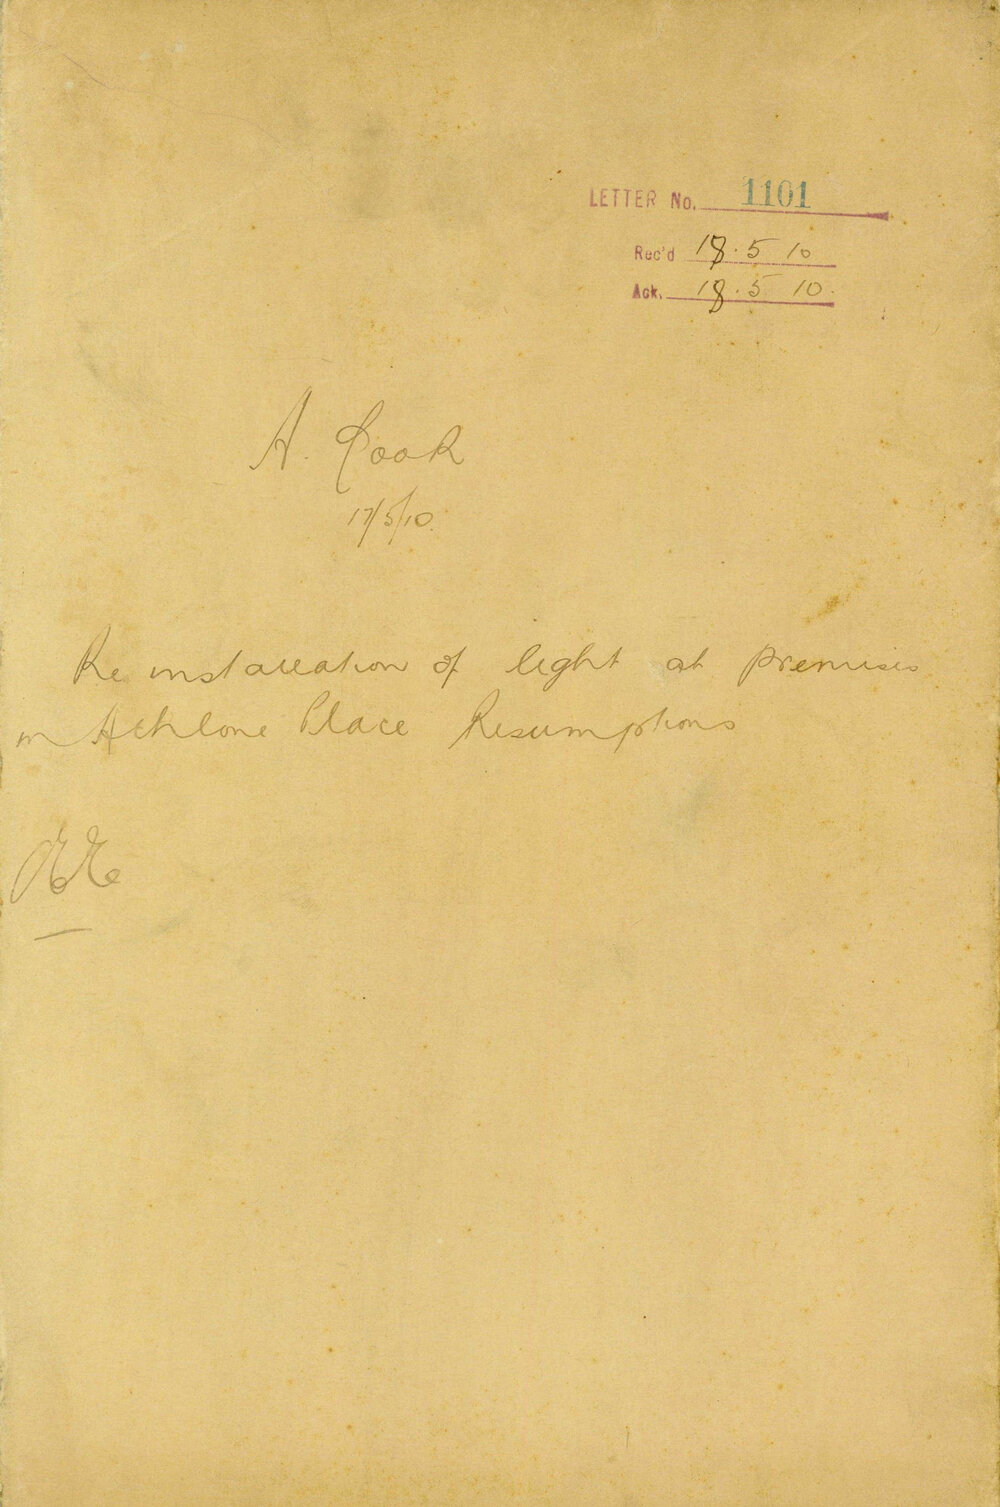 LETTER No. 1101
Rec'd 18.5 10
Ack. 18.5 10.
A. Cook
17/5/10.
Re installation of light at premises
in Athlone Place Resumptions